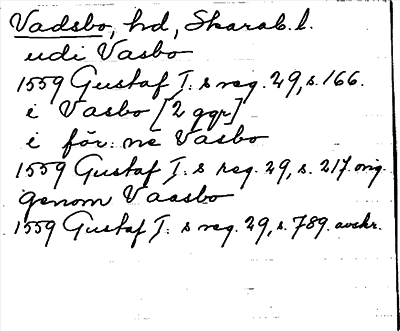 Vadsbo, hd, Skarab. l.
udi Vasbo
1559 Gustaf I:s reg. 29, s. 166.
i Vasbo [2 ggr]
i för:ne Vasbo
1559 Gustaf I:s reg. 29, s. 217. orig.
genom Vaasbo
1559 Gustaf I:s reg. 29, s. 789. avskr.